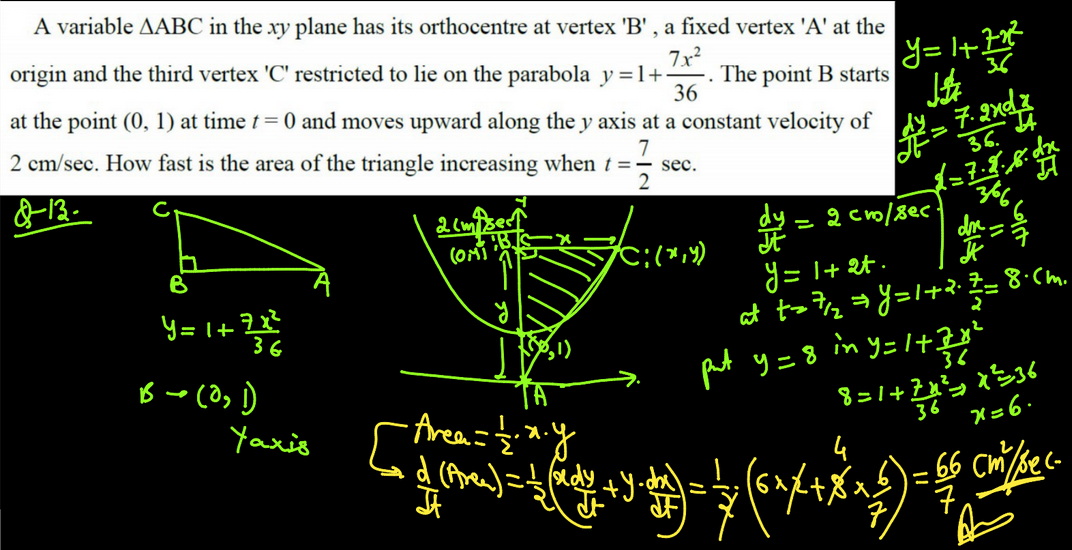 A variable ΔABC in the xy plane has its orthocentre at vertex 'B' , a fixed vertex 'A' at the
origin and the third vertex 'C' restricted to lie on the parabola y = 1 + 7x²/36 . The point B starts
at the point (0, 1) at time t = 0 and moves upward along the y axis at a constant velocity of
2 cm/sec. How fast is the area of the triangle increasing when t = 7/2 sec.
Q-12.
C
B
A
y = 1 + 7x²/36
B → (0, 1)
Y axis
2 cm/sec
B
x
C:(x,y)
y
(0,1)
A
dy/dt = 2 cm/sec
y = 1 + 2t.
at t = 7/2 ⇒ y = 1 + 2·7/2 = 8 cm.
put y = 8 in y = 1 + 7x²/36
8 = 1 + 7x²/36 ⇒ x² = 36
x = 6.
y = 1 + 7x²/36
↓ d/dt
dy/dt = 7·2x/36 dx/dt
2 = 7·2·6/36 · dx/dt
dx/dt = 6/7
Area = 1/2 · x · y
d/dt (Area) = 1/2 (x dy/dt + y · dx/dt) = 1/2 · (6 × 2 + 8 × 6/7) = 66/7 cm²/sec.
4